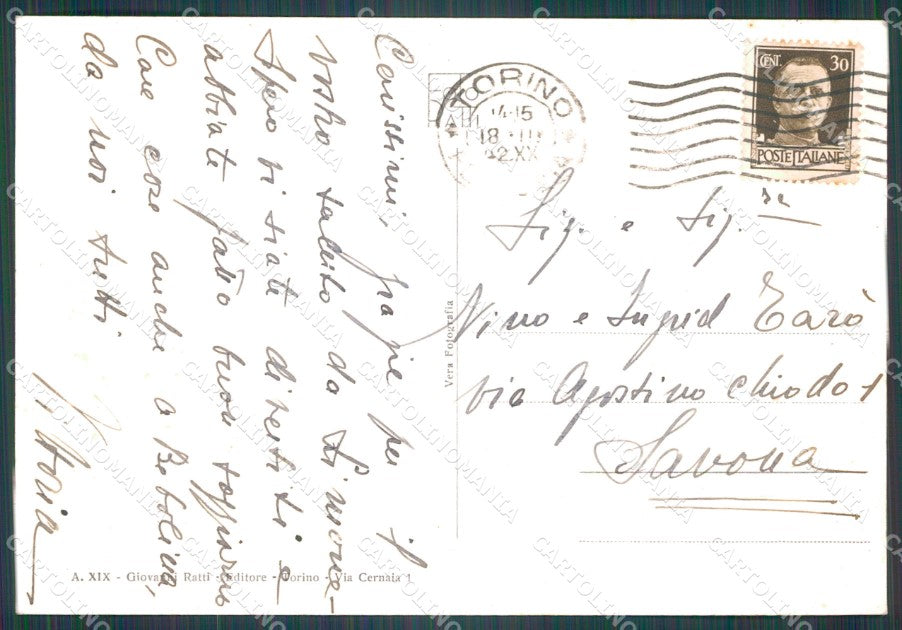 Carissimi, grazie per il
vostro saluto da Limone-
Spero vi siate divertiti e
abbiate fatto buon soggiorno
Care cose anche a
da noi tutti
Vera Fotografia
A. XIX - Giovanni Ratti - Editore - Torino - Via Cernaia 1
TORINO
14-15
18 III
42.XX
CENT. 30
POSTE ITALIANE
Sig. e Sig.ra
Nino e Ingrid Tarò
via Agostino Chiodo 1
Savona
CARTOLINOMANIA